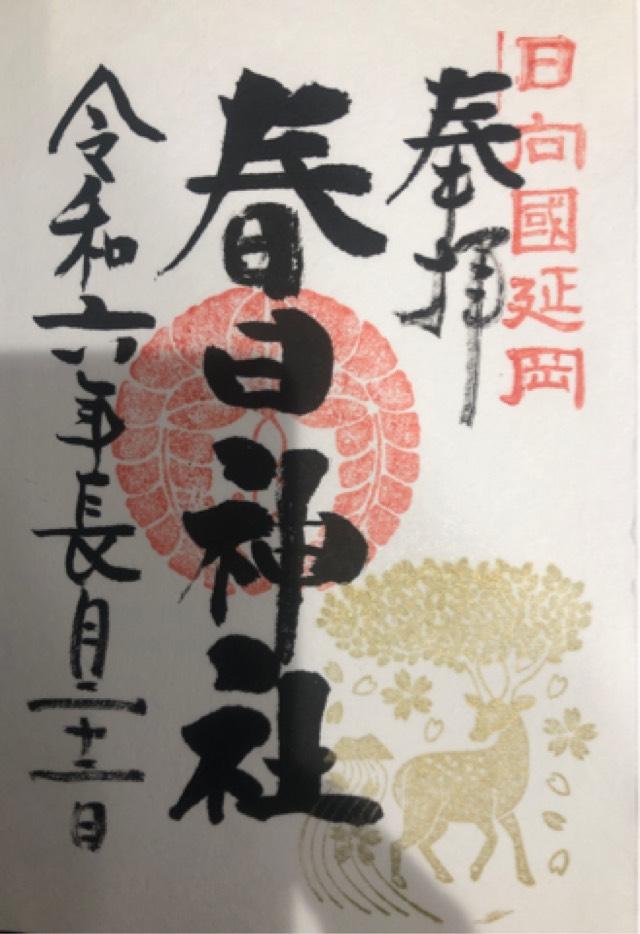 旧向國延岡
奉拝
春日神社
令和六年長月二十二日